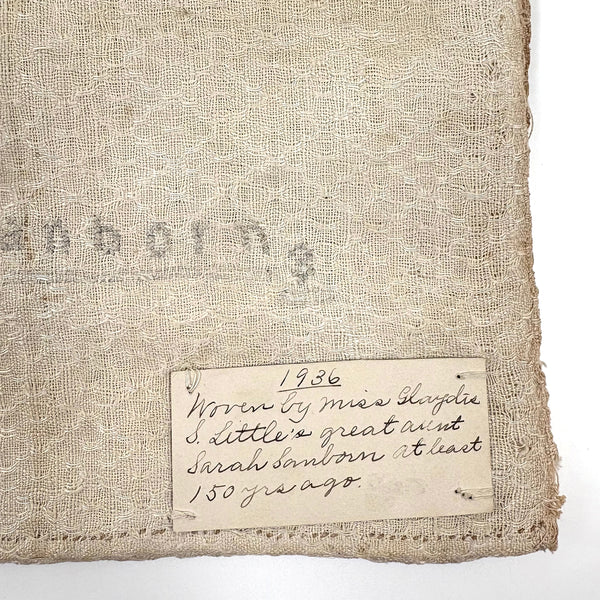 1936
Woven by Miss Glaydis
S. Little's great aunt
Sarah Sanborn at least
150 yrs ago.